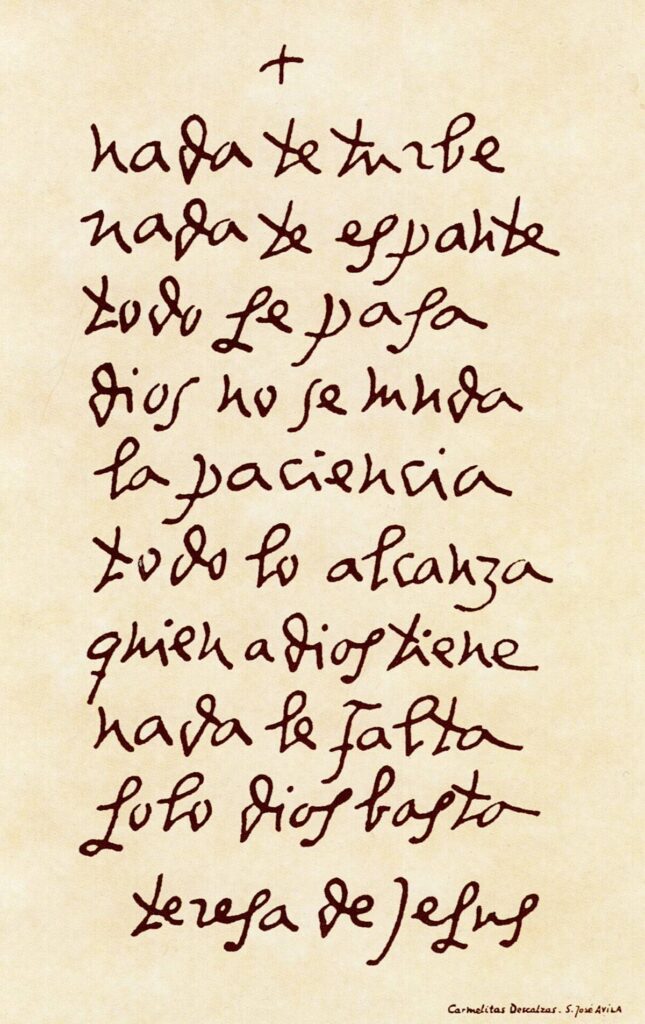 +
nada te turbe
nada te espante
todo se pasa
dios no se muda
la paciencia
todo lo alcanza
quien a dios tiene
nada le falta
solo dios basta
teresa de Jesus
Carmelitas Descalzas. S. José AVILA